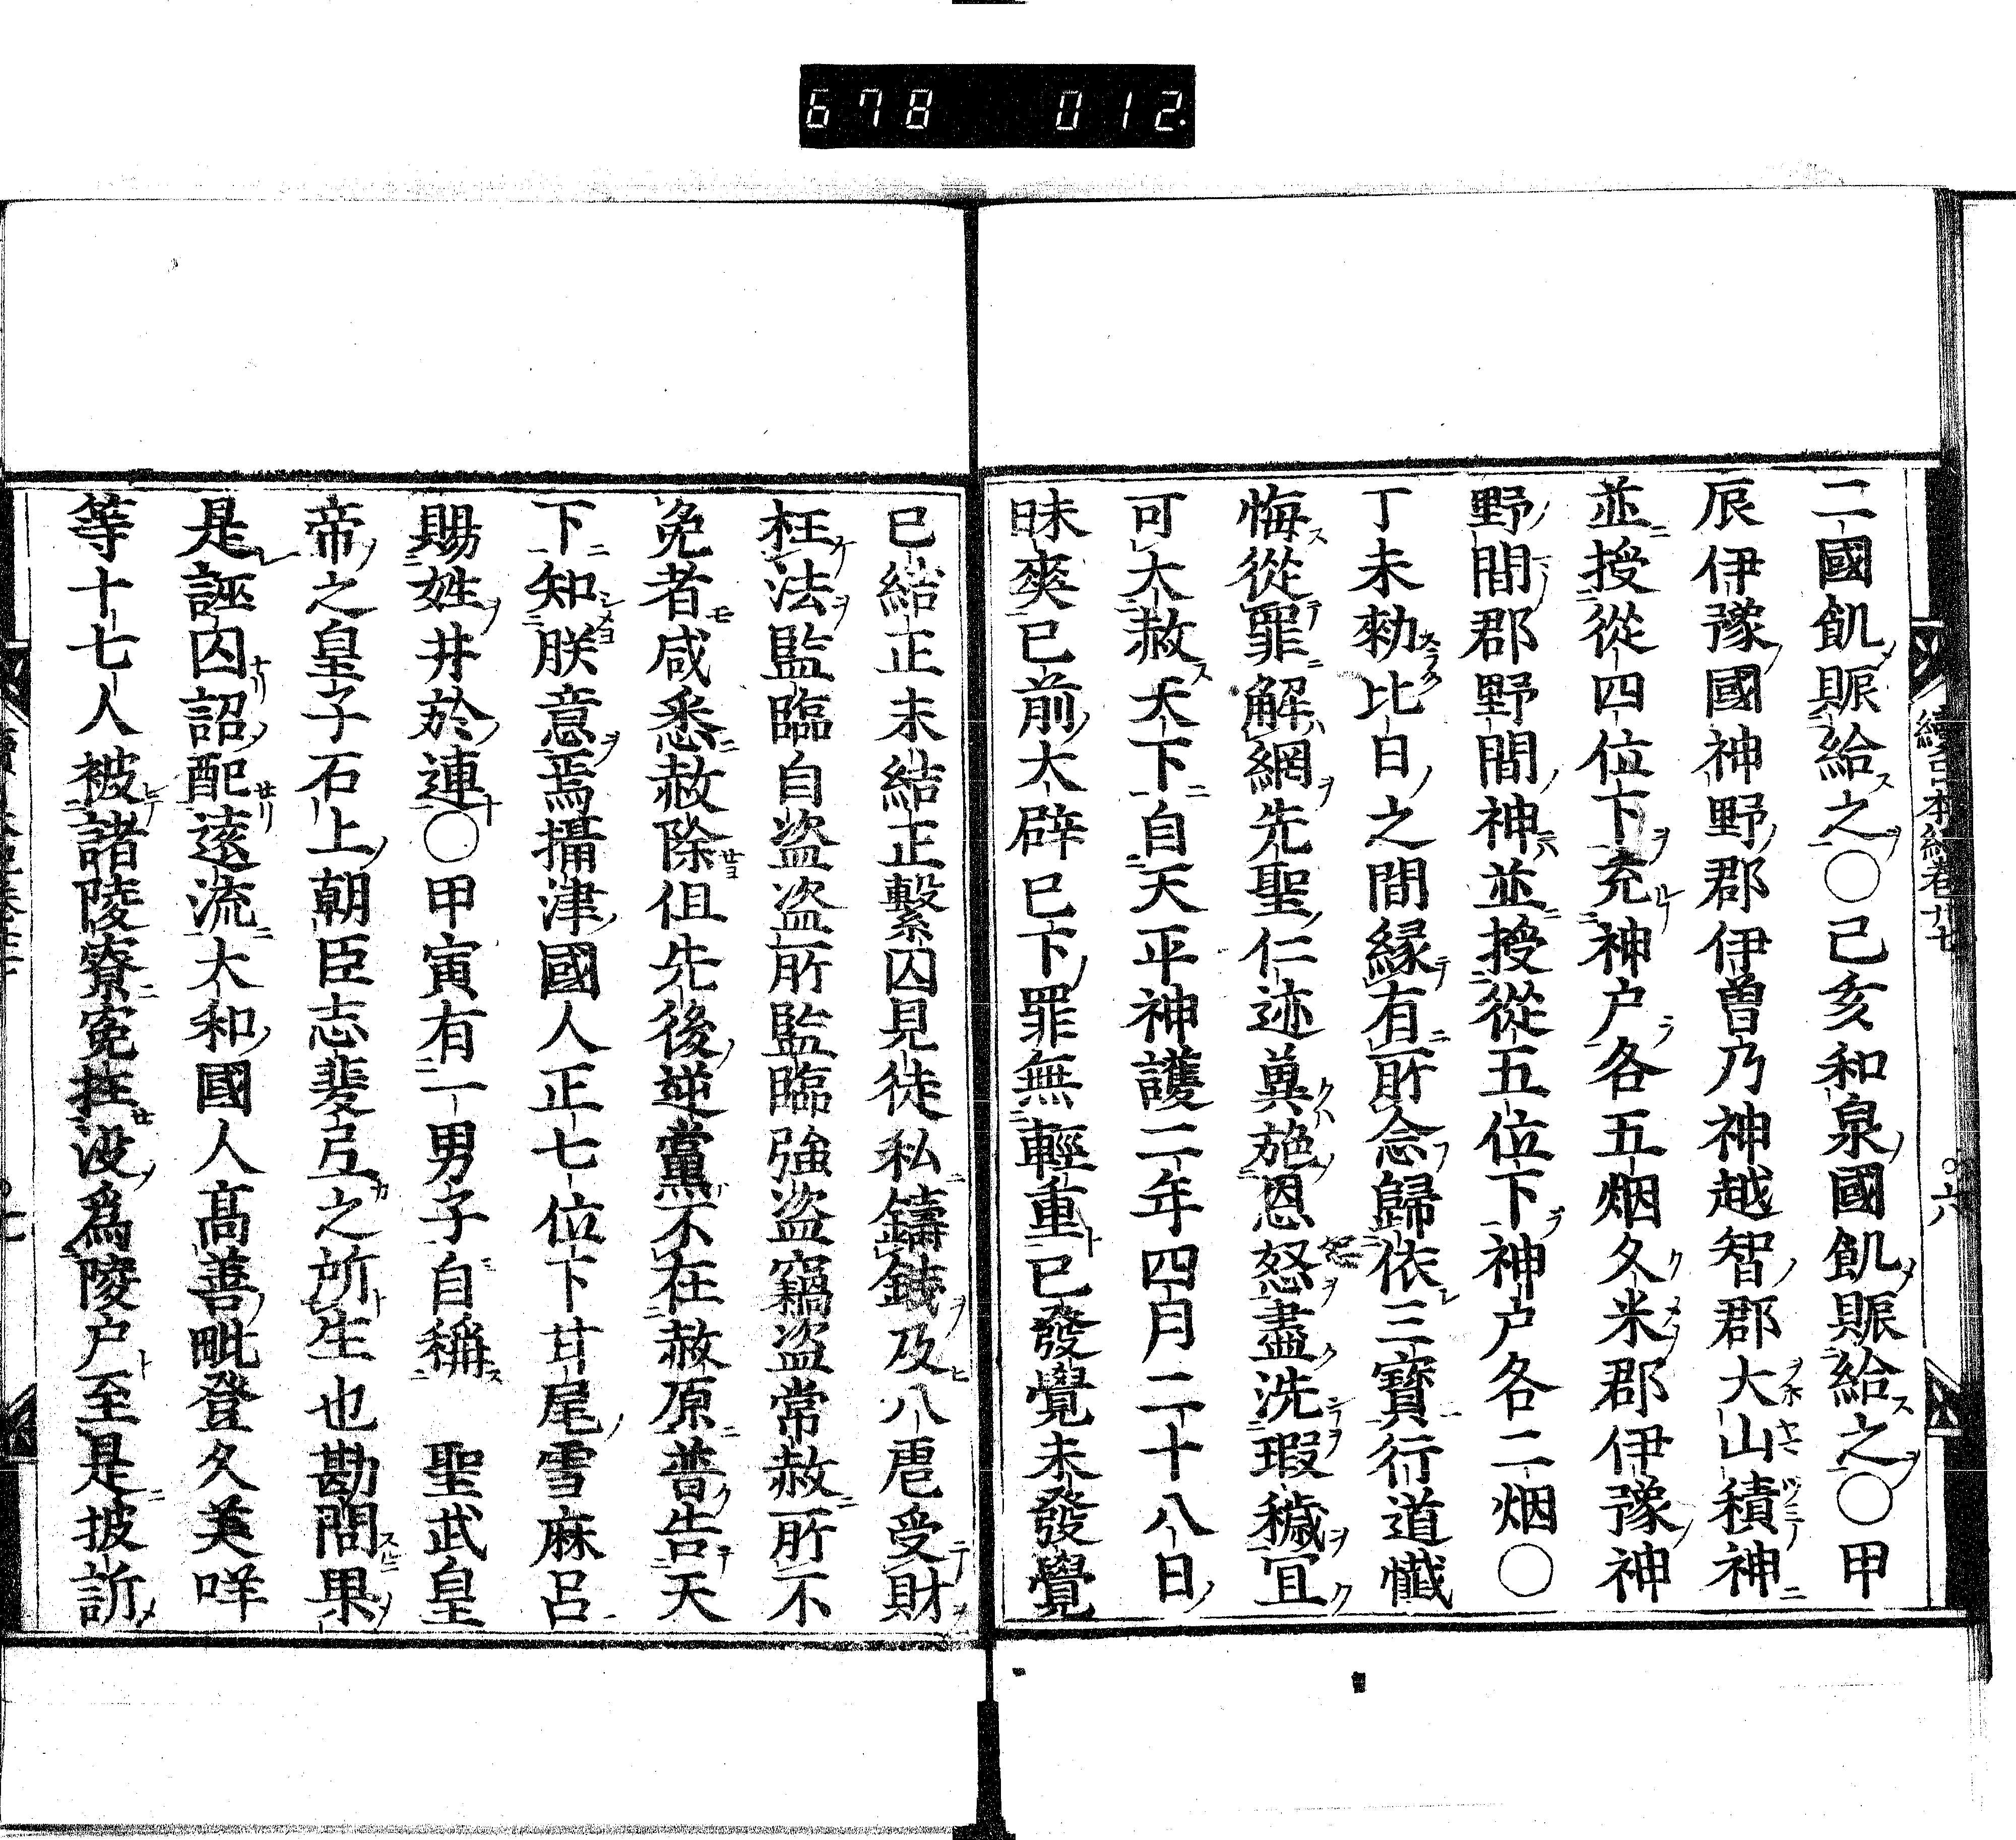 678 012
續日本紀卷廿七 ○六
二國飢賑給之○己亥和泉國飢賑給之○甲
辰伊豫國神野郡伊曽乃神越智郡大山積神
並授從四位下充神户各五烟久米郡伊豫神
野間郡野間神並授從五位下神户各二烟○
丁未勑比日之間縁有所念歸依三寶行道懺
悔從罪解網先聖仁迹冀施恩怒盡洗瑕穢宜
可大赦天下自天平神護二年四月二十八日
昧爽已前大辟已下罪無輕重已發覺未發覺
已結正未結正繫囚見徒私鑄錢及八虐受財
枉法監臨自盜盜所監臨強盜竊盜常赦所不
免者咸悉赦除但先後逆黨不在赦原普告天
下知朕意焉攝津國人正七位下甘尾雪麻呂
賜姓井於連○甲寅有一男子自稱　聖武皇
帝之皇子石上朝臣志斐弖之所生也勘問果
是誣囚詔配遠流大和國人髙善毗登久美咩
等十七人被諸陵寮寃抂没爲陵户至是披訴